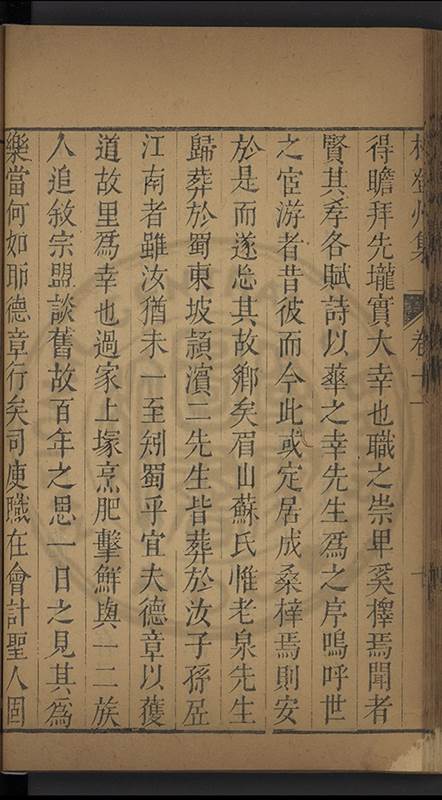 集 卷十一
得瞻拜先壠實大幸也職之崇卑奚擇焉聞者
賢其孝各賦詩以華之幸先生爲之序嗚呼世
之宦游者昔彼而今此或定居成桑梓焉則安
於是而遂忘其故鄉矣眉山蘇氏惟老泉先生
歸葬於蜀東坡潁濵二先生皆葬於汝子孫居
江南者雖汝猶未一至矧蜀乎宜夫德章以獲
道故里爲幸也過家上塚烹肥擊鮮與一二族
人追敘宗盟談舊故百年之思一日之見其爲
樂當何如耶德章行矣司庾職在會計聖人固